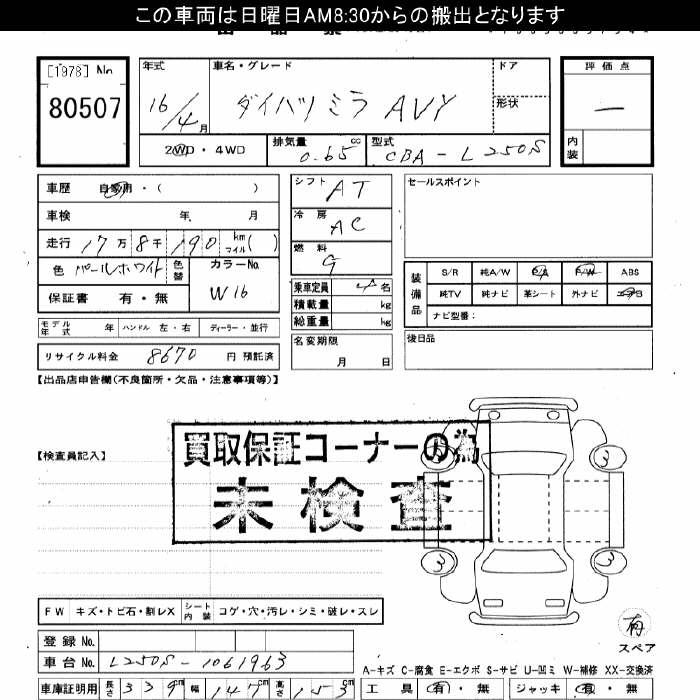 この車両は日曜日AM8:30からの搬出となります
[1978] No
80507
年式 車名・グレード ドア
16/4月 ダイハツ ミラ AVY 形状
2WD・4WD 排気量 0.65 cc 型式 CBA-L250S
評価点
―
内装
車歴 自家用・( )
車検 年 月
走行 17万8千190 km マイル( )
色 パールホワイト 色替 カラーNo. W16
保証書 有・無
モデル年式 年 ハンドル 左・右 ディーラー・並行
リサイクル料金 8670 円 預託済
シフト AT
冷房 AC
燃料 G
乗車定員 4 名
積載量 kg
総重量 kg
名変期限
月 日
セールスポイント
装備品 S/R 純A/W P/S P/W ABS
純TV 純ナビ 革シート 外ナビ エアB
ナビ型番:
後日品
【出品店申告欄(不良箇所・欠品・注意事項等)】
【検査員記入】
買取保証コーナーの為
未検査
3 3
3 3
有
スペア
FW キズ・トビ石・割レX シート内装 コゲ・穴・汚レ・シミ・破レ・スレ
登録 No.
車台 No. L250S-1061963
車庫証明用 長さ 339cm 幅 147cm 高さ 153cm
A-キズ C-腐食 E-エクボ S-サビ U-凹ミ W-補修 XX-交換済
工具 有・無 ジャッキ 有・無